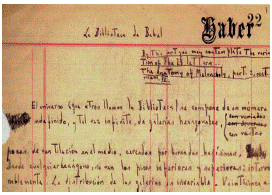 La Biblioteca de Babel
Haber 22
By this art you may contemplate the varia-
tion of the 23 letters...
The Anatomy of Melancholy, part. 2, sect.
El universo (que otros llaman la Biblioteca) se compone de un número
indefinido, y tal vez infinito, de galerías hexagonales,
con vastos
pozos de ventilación en el medio, cercados por barandas bajísimas.
Desde cualquier hexágono, se ven los pisos inferiores y superiores: intermi-
nablemente. La distribución de las galerías es invariable.